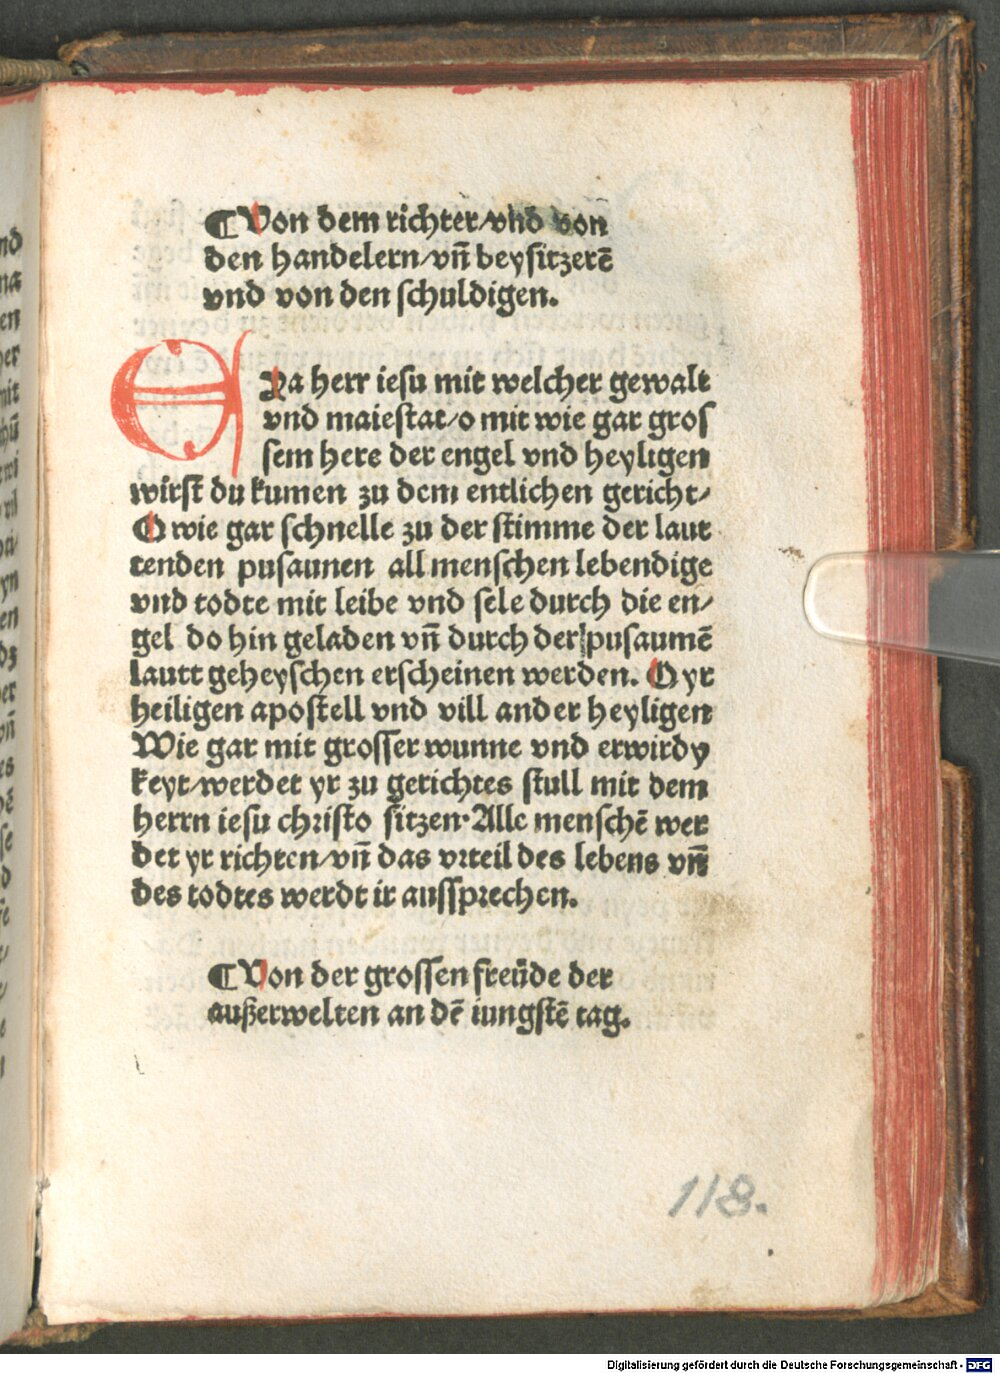 ¶Von dem richter/vnd von
den handelern/vn̄ beysitzerē
vnd von den schuldigen.
EYa herr iesu mit welcher gewalt
vnd maiestat/o mit wie gar gros
sem here der engel vnd heyligen
wirst du kumen zu dem entlichen gericht/
O wie gar schnelle zu der stimme der laut
tenden pusaunen all menschen lebendige
vnd todte mit leibe vnd sele durch die en/
gel do hin geladen vn̄ durch der pusaumē
lautt geheyschen erscheinen werden. O yr
heiligen apostell vnd vill ander heyligen
Wie gar mit grosser wunne vnd erwirdy
keyt/werdet yr zu gerichtes stull mit dem
herrn iesu christo sitzen·Alle menschē wer
det yr richten/vn̄ das vrteil des lebens vn̄
des todtes werdt ir aussprechen.
¶Von der grossen freüde der
außerwelten an dē iungstē tag.
118.
Digitalisierung gefördert durch die Deutsche Forschungsgemeinschaft - DFG